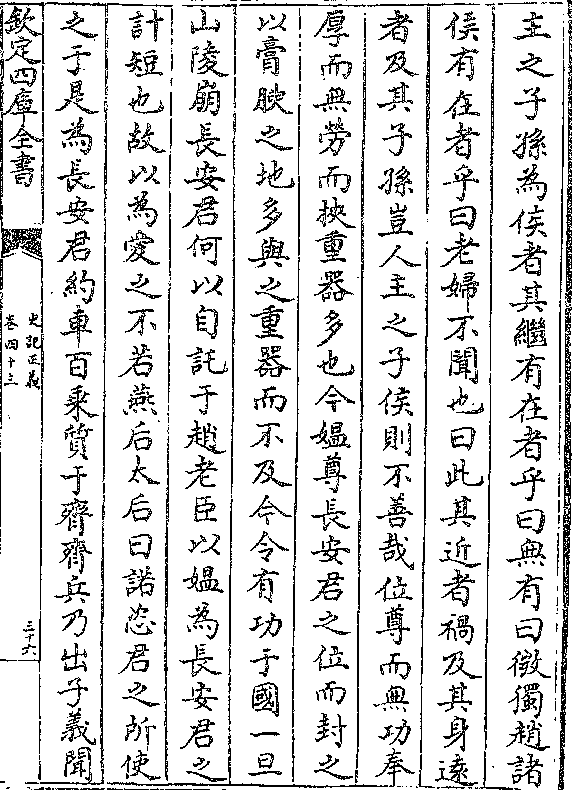 主之子孫為侯者其繼有在者乎曰無有曰微獨趙諸
侯有在者乎曰老婦不聞也曰此其近者禍及其身遠
者及其子孫豈人主之子侯則不善哉位尊而無功奉
厚而無勞而挾重器多也今媼尊長安君之位而封之
以膏腴之地多與之重器而不及今令有功于國一旦
山陵崩長安君何以自託于趙老臣以媼為長安君之
計短也故以為愛之不若燕后太后曰諾恣君之所使
之于是為長安君約車百乘質于齊齊兵乃出子義聞
欽定四庫全書
史記正義
卷四十三
三十六